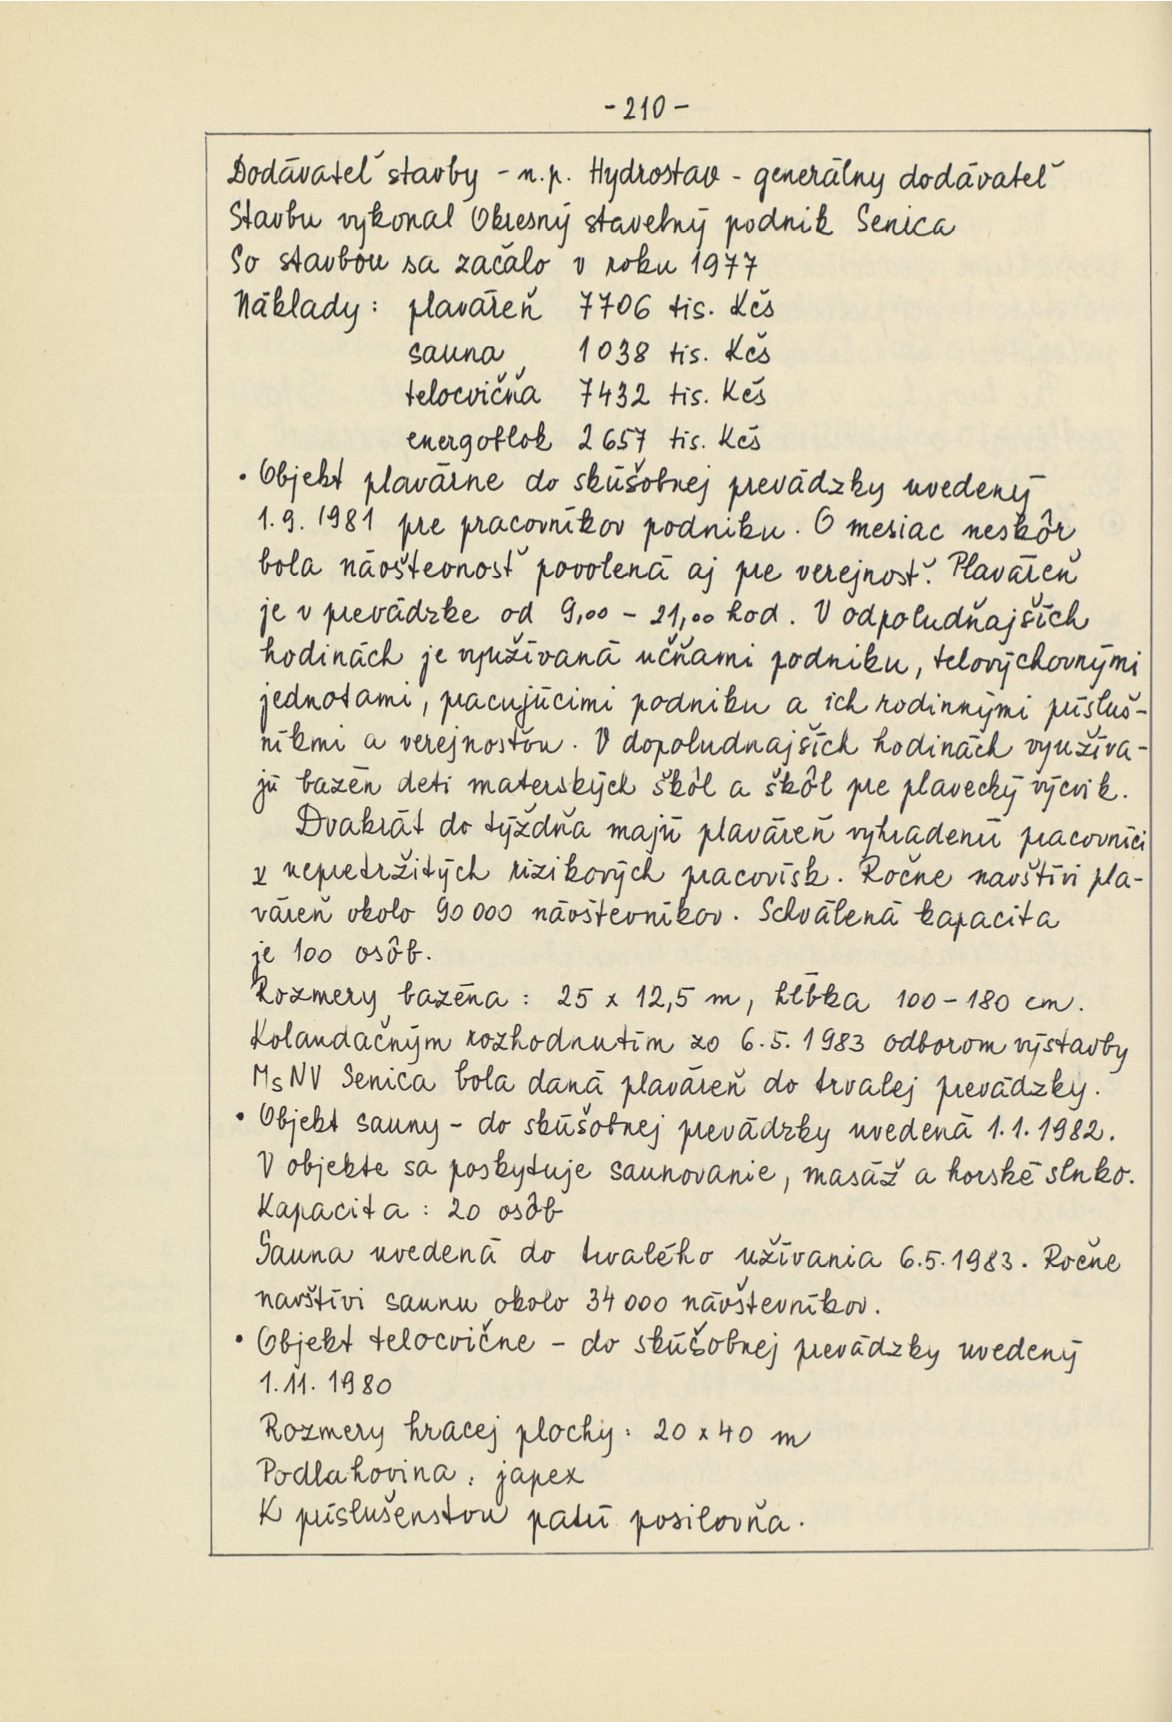 - 210 -
Dodávateľ stavby - n.p. Hydrostav - generálny dodávateľ
Stavbu vykonal Okresný stavebný podnik Senica
So stavbou sa začalo v roku 1977
Náklady : plaváreň 7706 tis. Kčs
sauna 1038 tis. Kčs
telocvičňa 7432 tis. Kčs
energoblok 2657 tis. Kčs
• Objekt plavárne do skúšobnej prevádzky uvedený
1.9. 1981 pre pracovníkov podniku. O mesiac neskôr
bola návštevnosť povolená aj pre verejnosť. Plaváreň
je v prevádzke od 9,00 - 21,00 hod. V odpoludňajších
hodinách je využívaná učňami podniku, telovýchovnými
jednotami, pracujúcimi podniku a ich rodinnými prísluš-
níkmi a verejnosťou. V dopoludnajších hodinách využíva-
jú bazén deti materských škôl a škôl pre plavecký výcvik.
Dvakrát do týždňa majú plaváreň vyhradenú pracovníci
z nepretržitých rizikových pracovísk. Ročne navštívi pla-
váreň okolo 90 000 návštevníkov. Schválená kapacita
je 100 osôb.
Rozmery bazéna : 25 x 12,5 m, hĺbka 100 - 180 cm.
Kolaudačným rozhodnutím zo 6.5. 1983 odborom výstavby
MsNV Senica bola daná plaváreň do trvalej prevádzky.
• Objekt sauny - do skúšobnej prevádzky uvedená 1.1. 1982.
V objekte sa poskytuje saunovanie, masáž a horské slnko.
Kapacita : 20 osôb
Sauna uvedená do trvalého užívania 6.5.1983. Ročne
navštívi saunu okolo 34 000 návštevníkov.
• Objekt telocvične - do skúšobnej prevádzky uvedený
1.11. 1980
Rozmery hracej plochy : 20 x 40 m
Podlahovina : japex
K príslušenstvu patrí posilovňa.